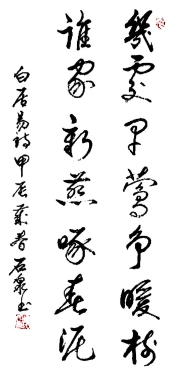 幾處早鶯争暖樹
誰家新燕啄春泥
白居易詩甲辰歲春石泉書